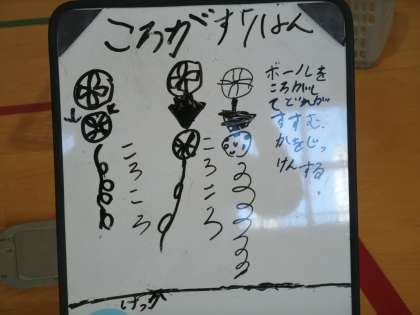 ころがすりはん
ボールを
ころがし
てどれが
すすむ
かをじっ
けんする。
ころころ
ころころ
けっか